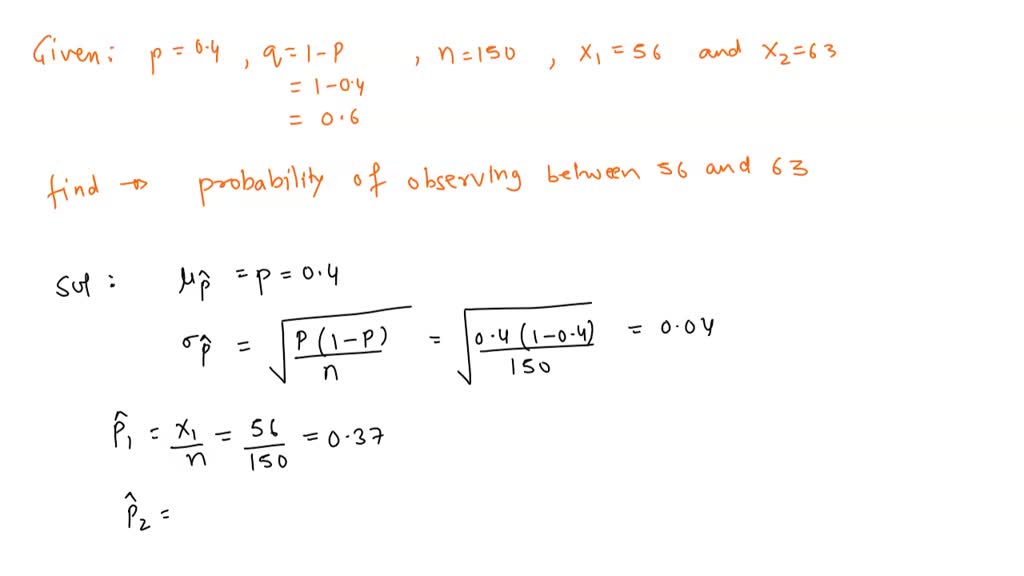 Given: p = 0.4 , q = 1-P , n = 150 , x₁ = 56 and x₂ = 63
= 1-0.4
= 0.6
find → probability of observing between 56 and 63
Sol : μp̂ = p = 0.4
σp̂ = √(P(1-P)/n) = √(0.4(1-0.4)/150) = 0.04
p̂₁ = x₁/n = 56/150 = 0.37
p̂₂ =